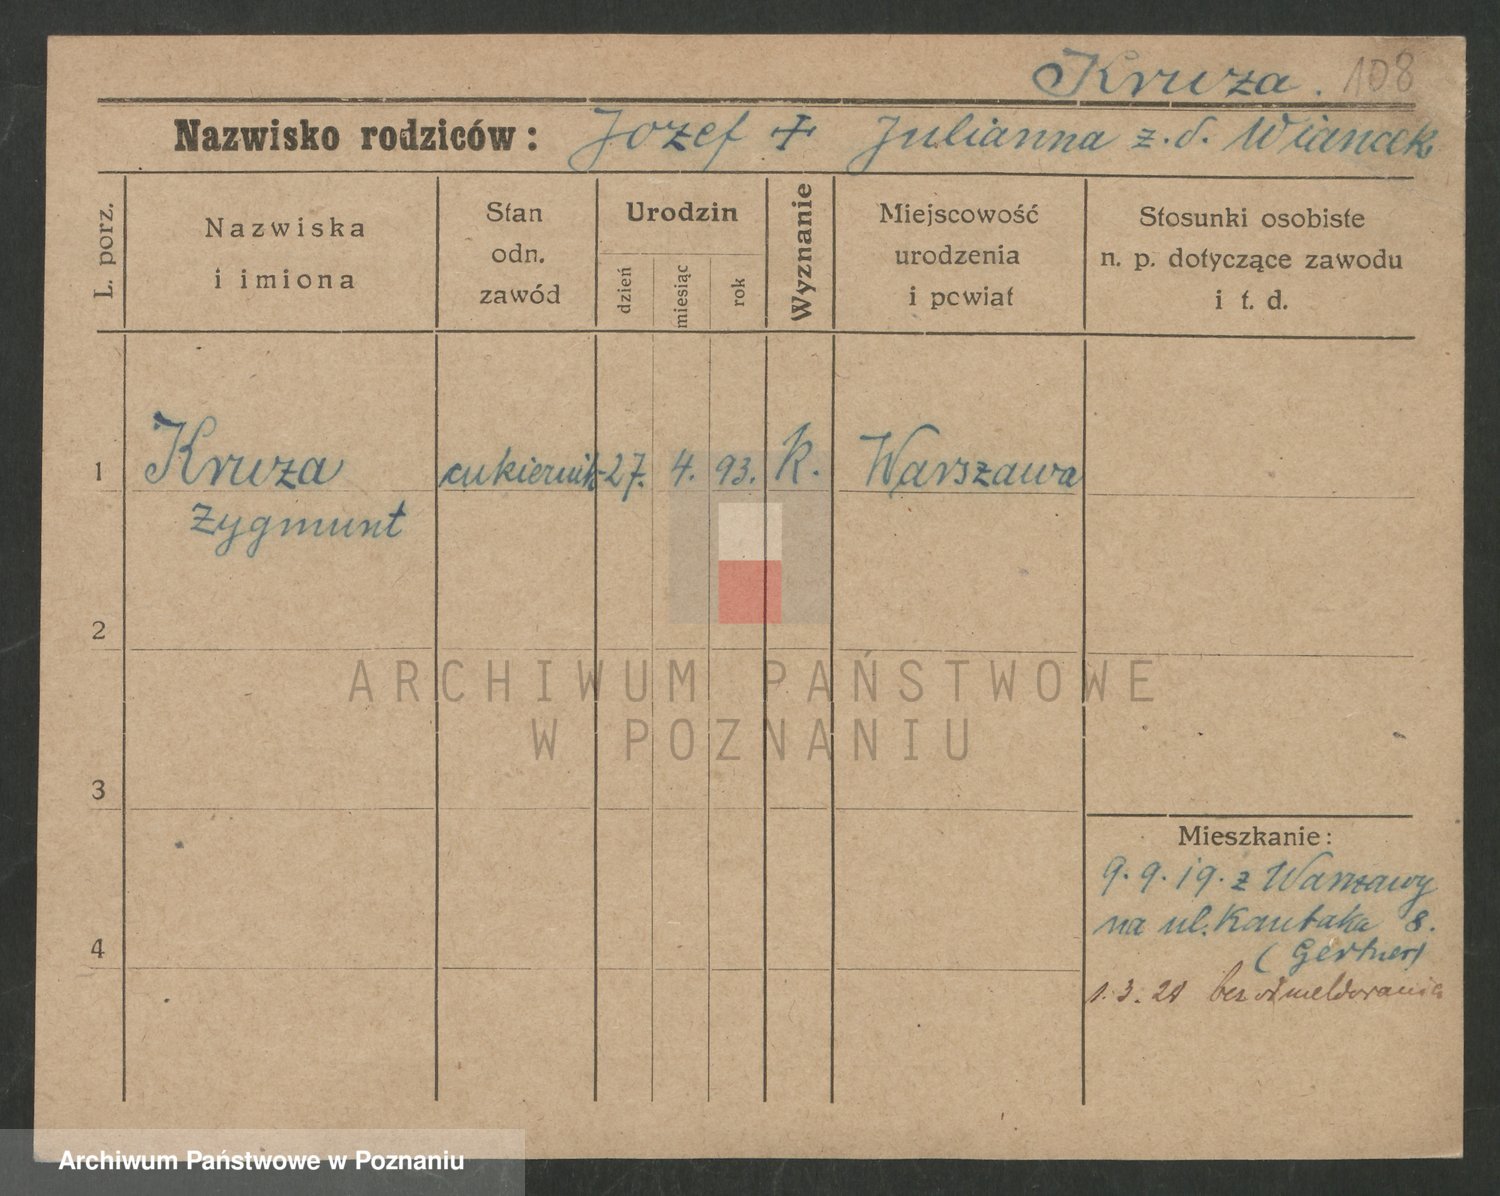 Kruza. 108
Nazwisko rodziców: Jozef + Julianna z.d. Wiancek
L. porz.
Nazwiska
i imiona
Stan
odn.
zawód
Urodzin
dzień
miesiąc
rok
Wyznanie
Miejscowość
urodzenia
i powiat
Stosunki osobiste
n. p. dotyczące zawodu
i t. d.
1 Kruza cukiernik 27. 4. 93. k. Warszawa
Zygmunt
2
3
4
Mieszkanie:
9. 9. 19. z Warszawy
na ul. 8.
(Gertner)
1. 3. 21 bez odmeldowania
ARCHIWUM PAŃSTWOWE
W POZNANIU
Archiwum Państwowe w Poznaniu